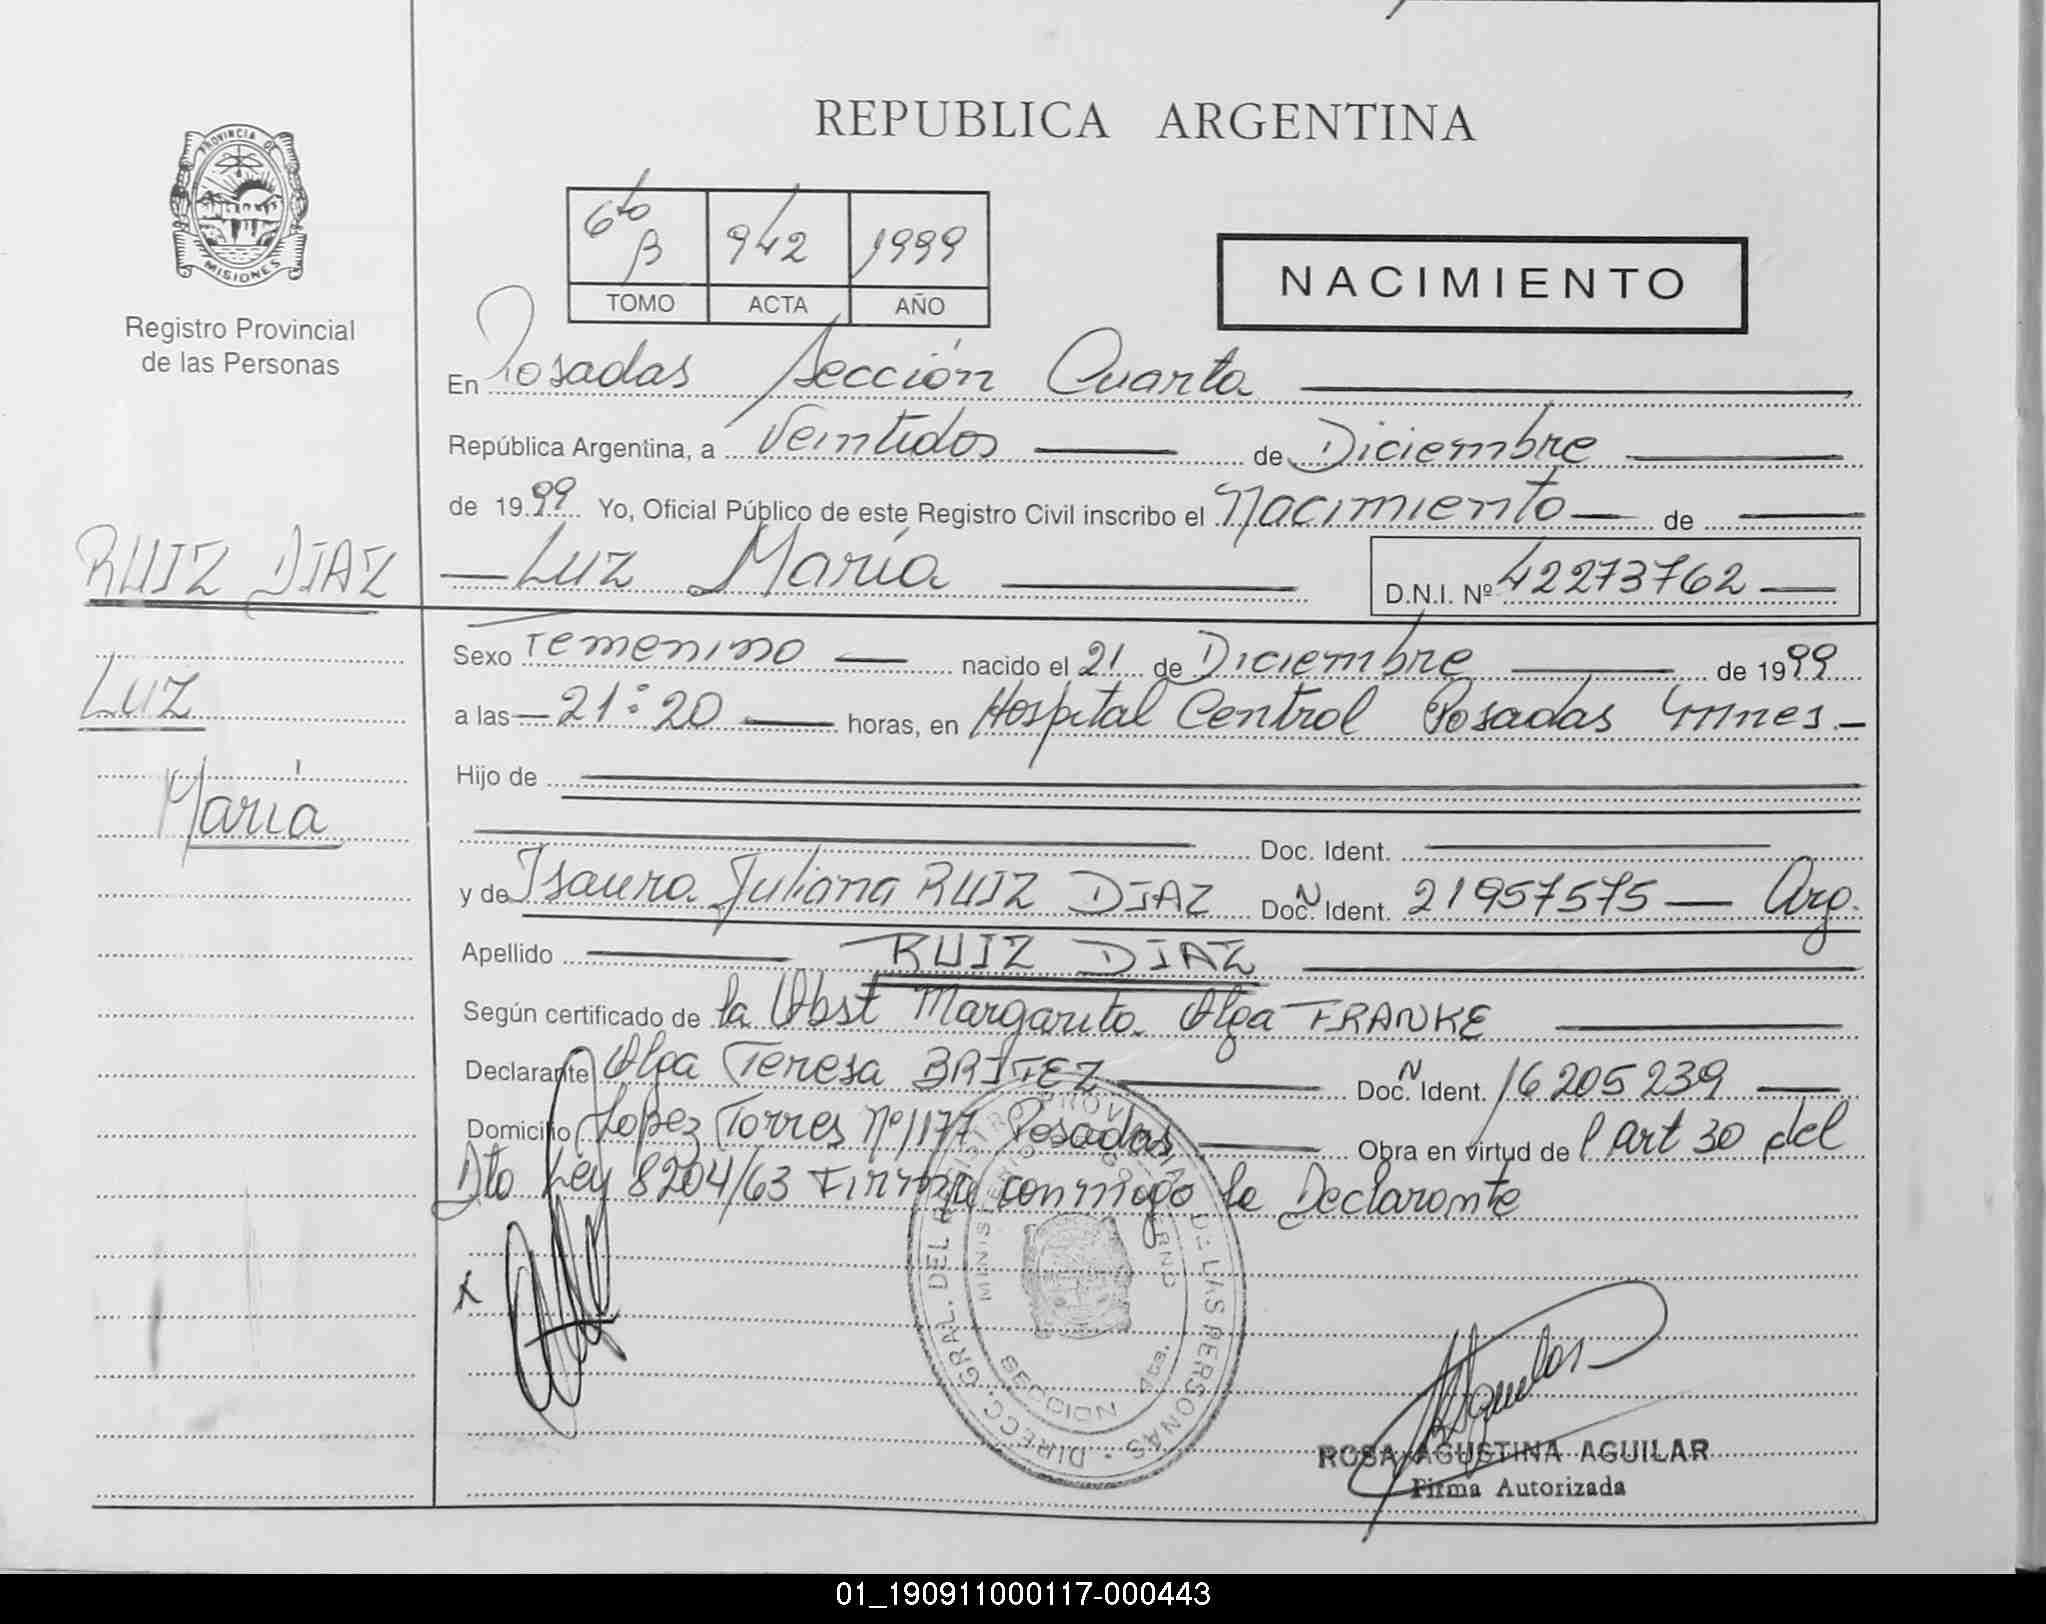 REPUBLICA ARGENTINA
PROVINCIA DE MISIONES
Registro Provincial
de las Personas
6to B 942 1999
TOMO ACTA AÑO
NACIMIENTO
En Posadas Sección Cuarta
República Argentina, a Veintidos de Diciembre
de 1999 Yo, Oficial Público de este Registro Civil inscribo el Nacimiento de
RUIZ DIAZ
Luz María D.N.I. Nº 42273762
Sexo Femenino nacido el 21 de Diciembre de 1999
Luz
a las 21:20 horas, en Hospital Central Posadas Mnes.
Hijo de
María
Doc. Ident.
y de Isaura Juliana RUIZ DIAZ Doc. N Ident. 21957575 Arg.
Apellido RUIZ DIAZ
Según certificado de la Obst Margarita Olga FRANKE
Declarante Olga Teresa BRITEZ Doc. N Ident. 16205239
Domicilio Lopez Torres Nº 1177 Posadas Obra en virtud del art 30 del
Dto Ley 8204/63 Firma conmigo la Declarante
x
DIRECC. GRAL. DEL REGISTRO PROVINCIAL DE LAS PERSONAS
MINISTERIO GOBIERNO
SECCION 4ta.
ROSA AGUSTINA AGUILAR
Firma Autorizada
01_190911000117-000443